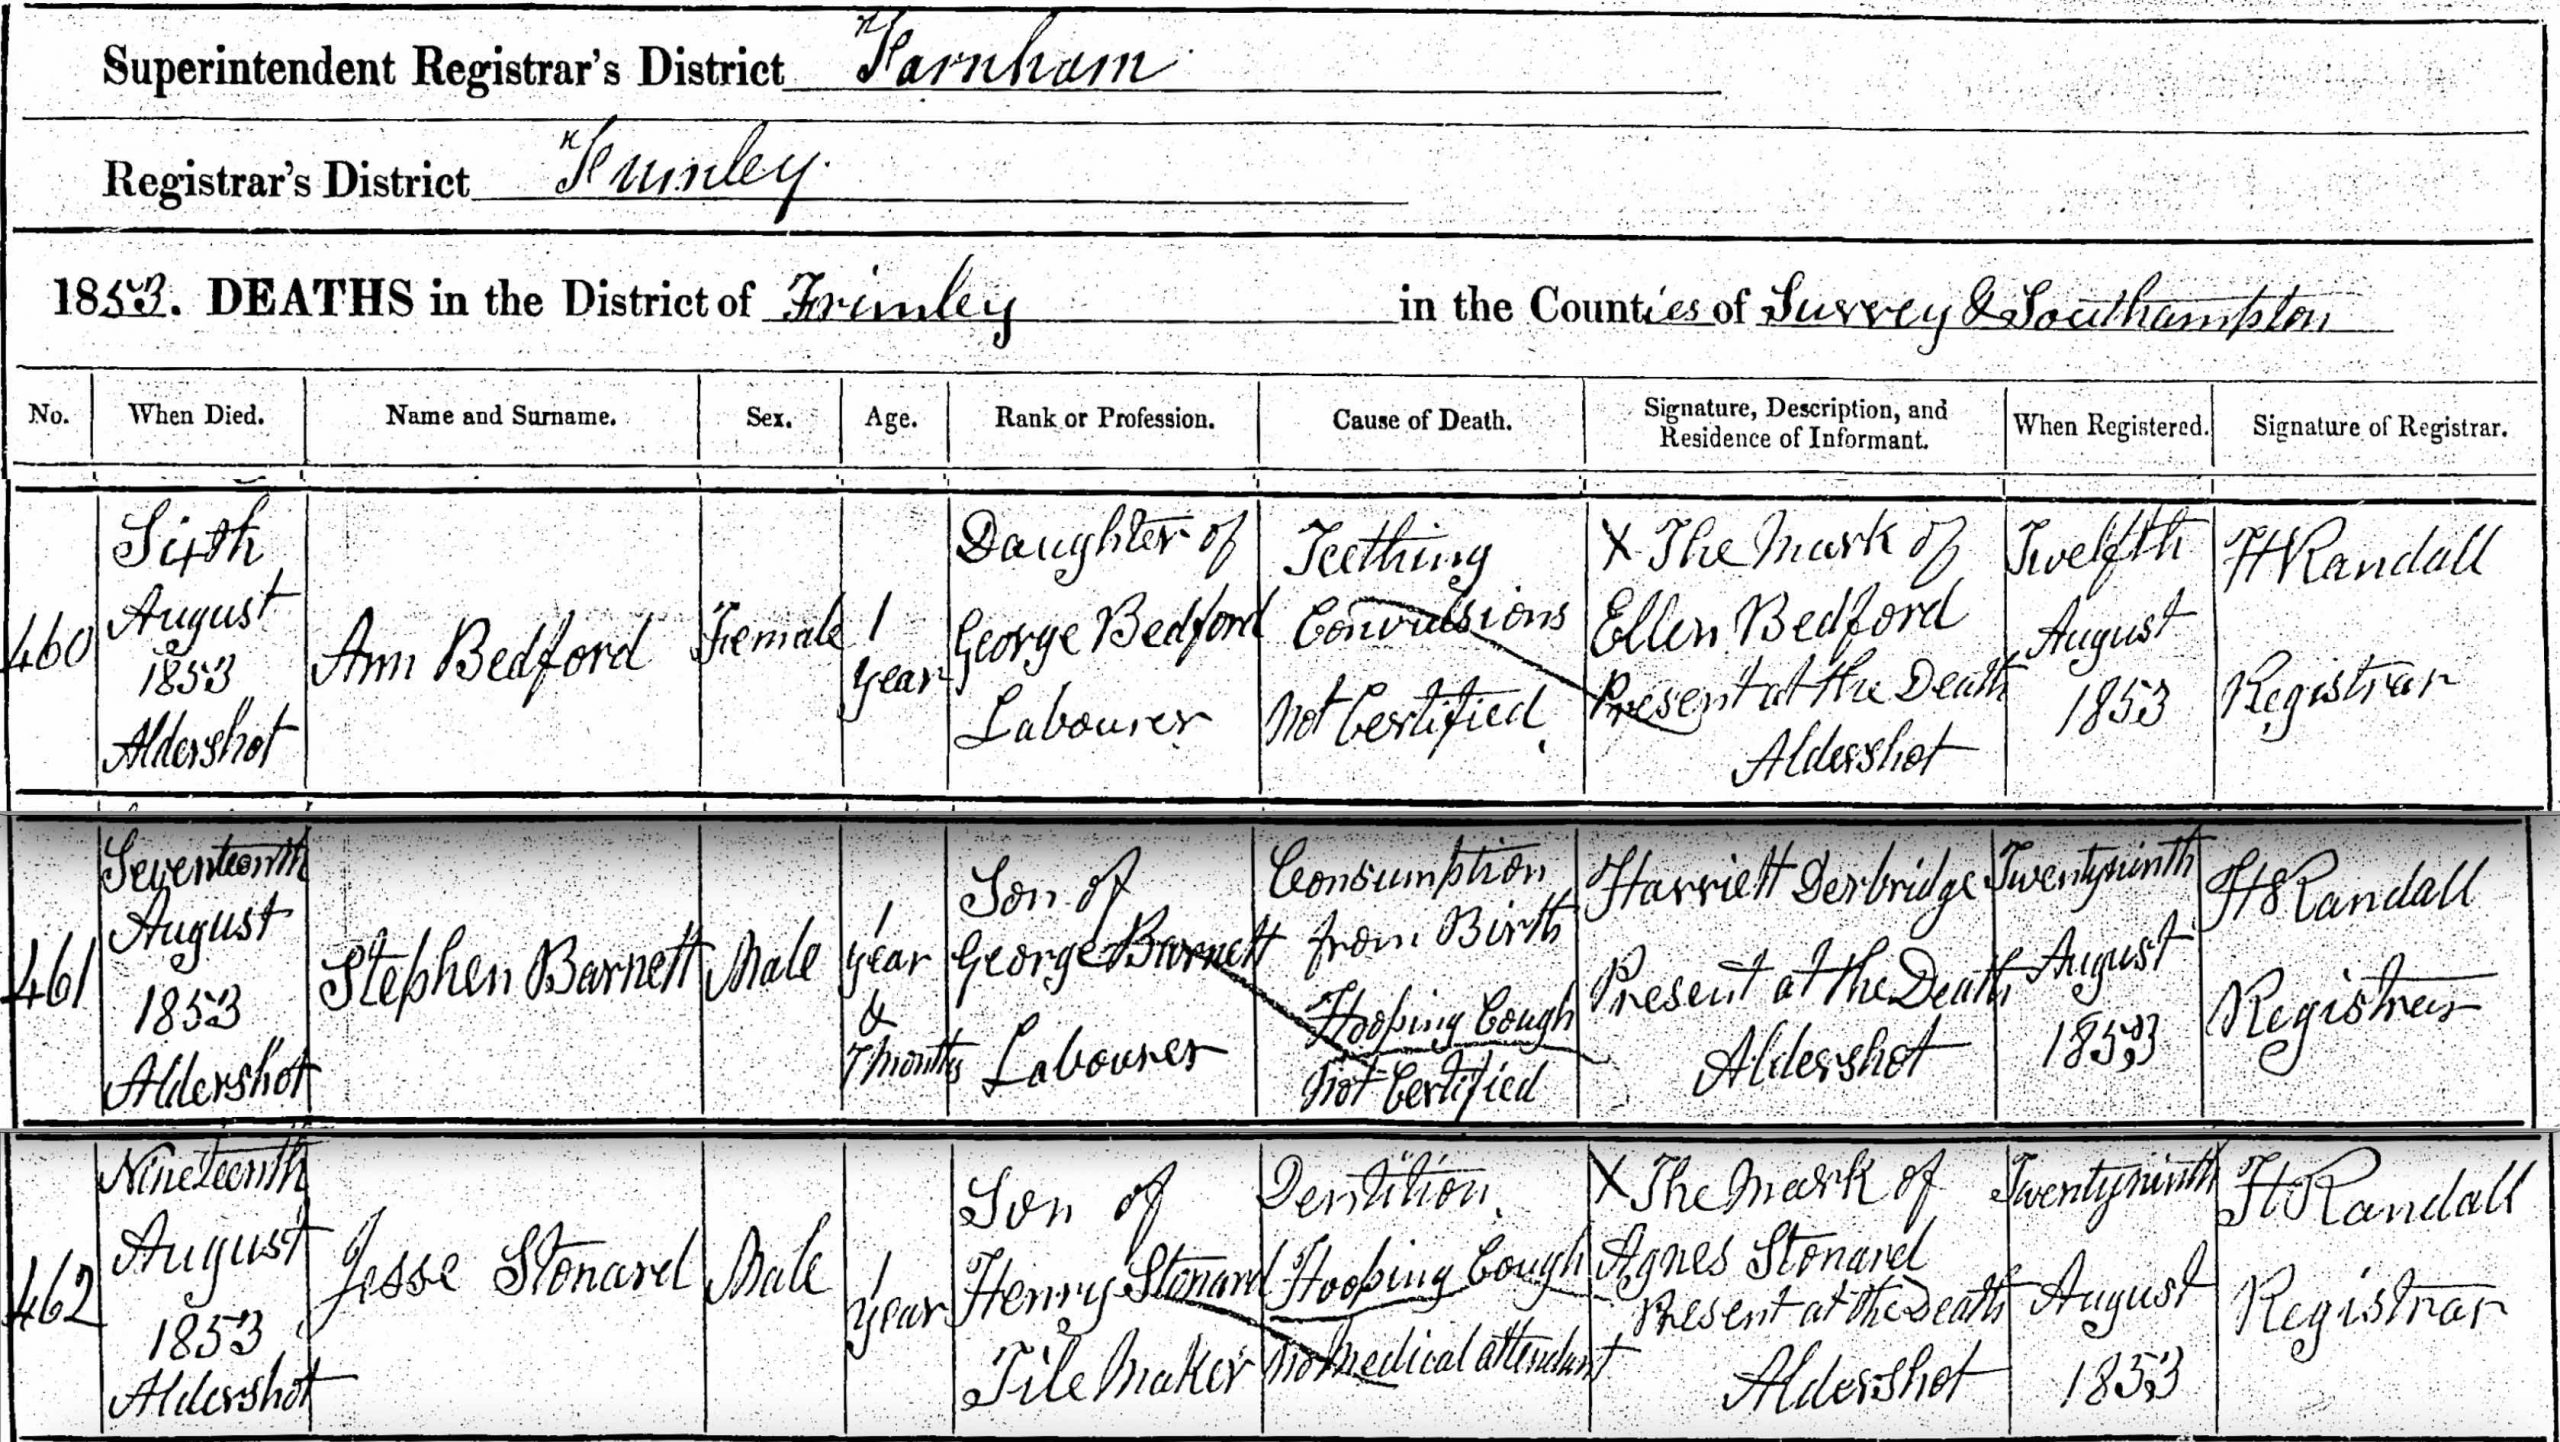 Superintendent Registrar's District Farnham
Registrar's District Frimley
1853. DEATHS in the District of Frimley in the Counties of Surrey & Southampton
No. When Died. Name and Surname. Sex. Age. Rank or Profession. Cause of Death. Signature, Description, and Residence of Informant. When Registered. Signature of Registrar.
460
Sixth
August
1853
Aldershot
Ann Bedford
Female
1
year
Daughter of
George Bedford
Labourer
Teething
Convulsions
Not Certified
X The Mark of
Ellen Bedford
Present at the Death
Aldershot
Twelfth
August
1853
H Randall
Registrar
461
Seventeenth
August
1853
Aldershot
Stephen Barnett
Male
1
year
&
7 months
Son of
George Barnett
Labourer
Consumption
from Birth
Hooping Cough
Not Certified
Harriett Derbridge
Present at the Death
Aldershot
Twentyninth
August
1853
H Randall
Registrar
462
Nineteenth
August
1853
Aldershot
Jesse Stonard
Male
1
year
Son of
Henry Stonard
Tile Maker
Dentition
Hooping Cough
No Medical attendant
X The Mark of
Agnes Stonard
Present at the Death
Aldershot
Twentyninth
August
1853
H Randall
Registrar